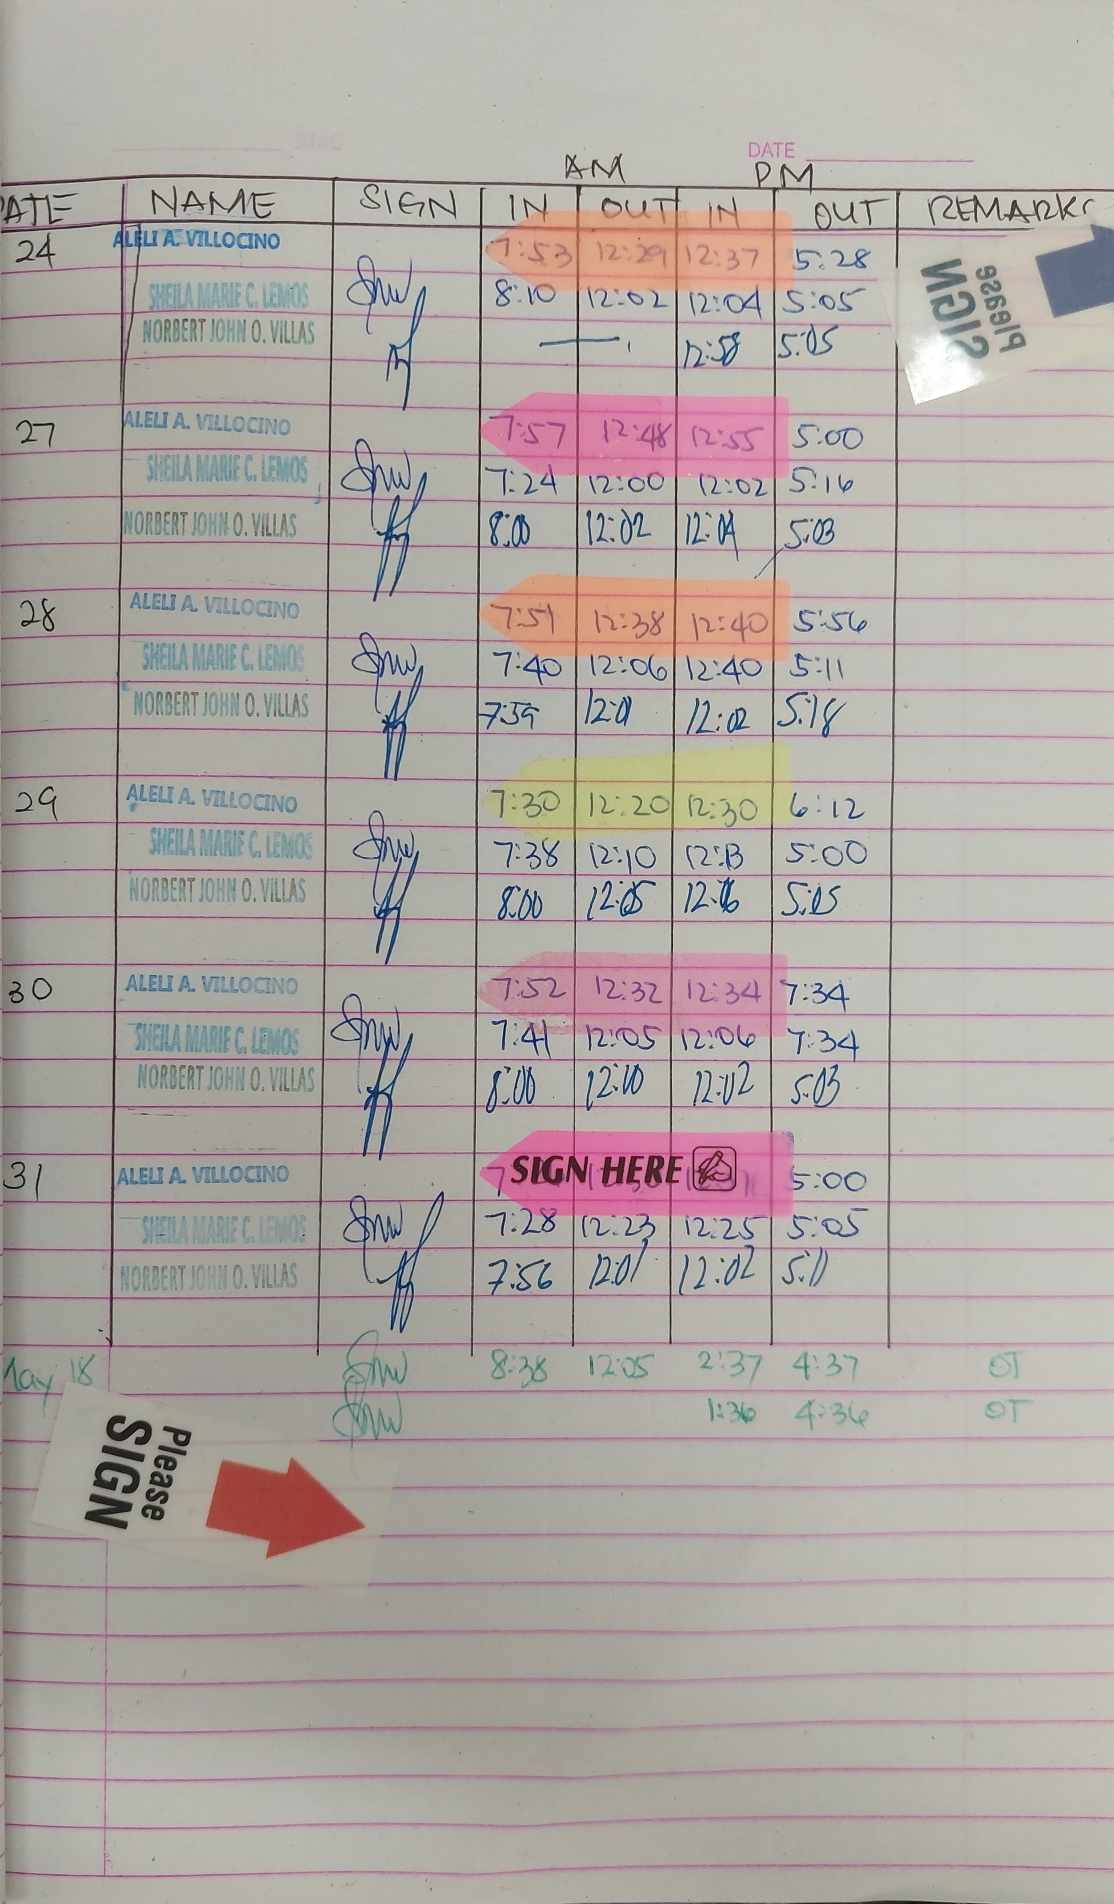 DATE
AM PM
ATE NAME SIGN IN OUT IN OUT REMARKS
24 ALELI A. VILLOCINO 7:53 12:29 12:37 5:28
SHEILA MARIE C. LEMOS 8:10 12:02 12:04 5:05
NORBERT JOHN O. VILLAS — 12:58 5:05
Please
SIGN
27 ALELI A. VILLOCINO 7:57 12:48 12:55 5:00
SHEILA MARIE C. LEMOS 7:24 12:00 12:02 5:16
NORBERT JOHN O. VILLAS 8:00 12:02 12:04 5:03
28 ALELI A. VILLOCINO 7:51 12:38 12:40 5:56
SHEILA MARIE C. LEMOS 7:40 12:06 12:40 5:11
NORBERT JOHN O. VILLAS 7:59 12:01 12:02 5:18
29 ALELI A. VILLOCINO 7:30 12:20 12:30 6:12
SHEILA MARIE C. LEMOS 7:38 12:10 12:13 5:00
NORBERT JOHN O. VILLAS 8:00 12:05 12:06 5:05
30 ALELI A. VILLOCINO 7:52 12:32 12:34 7:34
SHEILA MARIE C. LEMOS 7:41 12:05 12:06 7:34
NORBERT JOHN O. VILLAS 8:00 12:00 12:02 5:03
31 ALELI A. VILLOCINO SIGN HERE 5:00
SHEILA MARIE C. LEMOS 7:28 12:23 12:25 5:05
NORBERT JOHN O. VILLAS 7:56 12:01 12:02 5:11
May 18 8:38 12:05 2:37 4:37 OT
1:36 4:36 OT
Please
SIGN